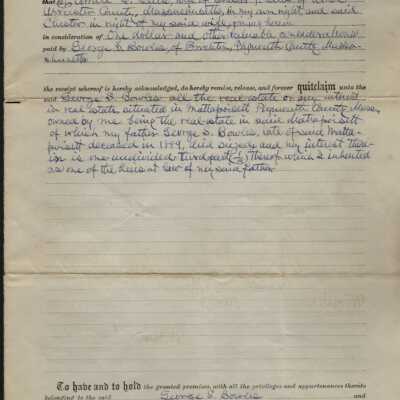 Worcester County, Massachusetts, in my own right and said
Chester in right of my said wife, joining herein
in consideration of One dollar and other valuable considerations
paid by George E. Bowles of Brockton, Plymouth County, Massa-
chusetts
the receipt whereof is hereby acknowledged, do hereby remise, release, and forever quitclaim unto the
said George E. Bowles all the real estate or any interest
in real estate situated in Mattapoisett Plymouth County, Mass.,
owned by me being the real estate in said Mattapoisett
of which my father George S. Bowles, late of said Matta-
poisett deceased in 1899, died seized and my interest there-
in is one undivided third part (1/3) thereof which I inherited
as one of the heirs at law of my said father
To have and to hold the granted premises, with all the privileges and appurtenances thereto
belonging to the said George E. Bowles and